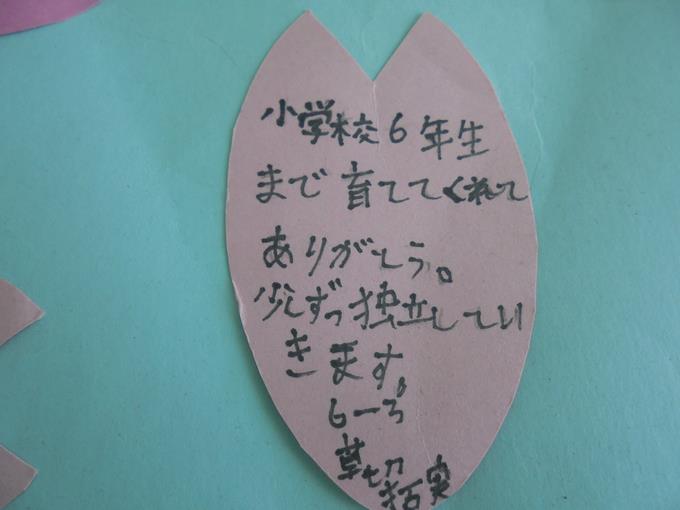 小学校6年生
まで育ててくれて
ありがとう。
少しずつ独立してい
きます。
6-3
草切
拓実